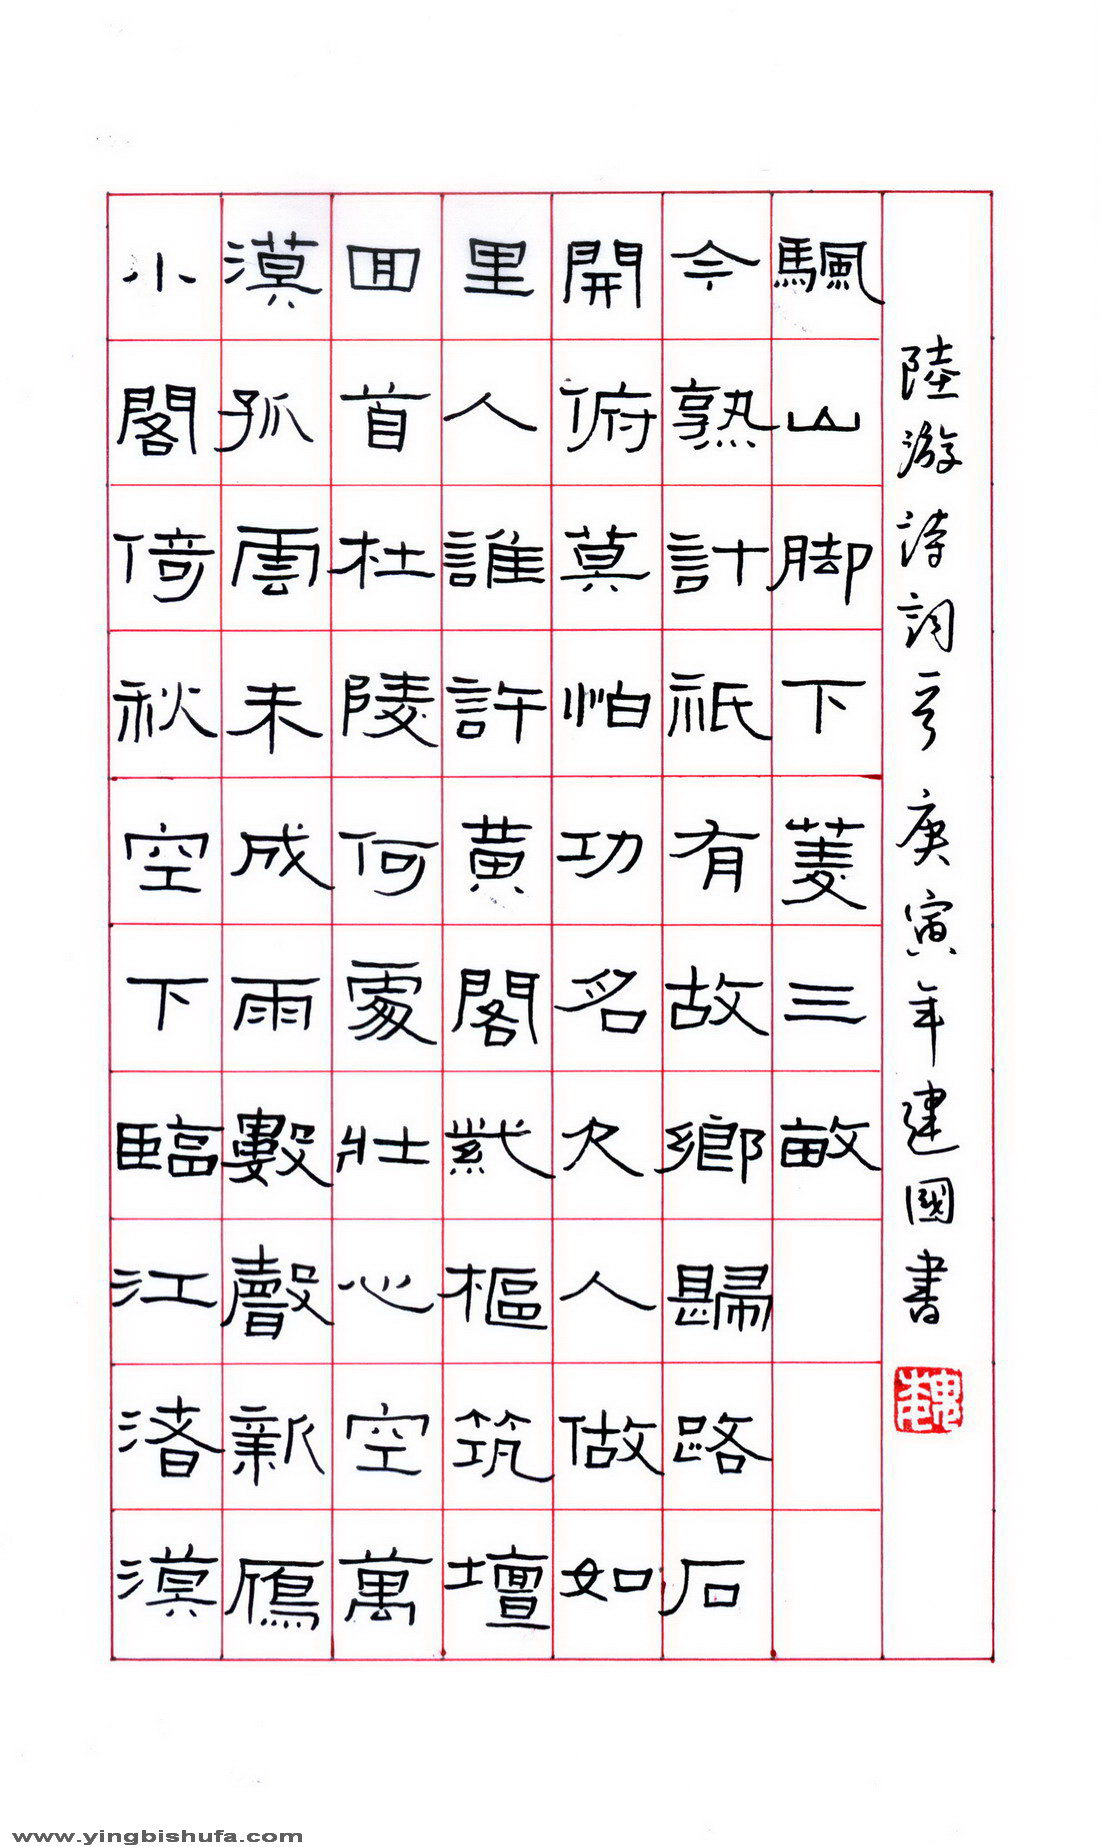 小閣倚秋空下臨江渚漠
漠孤雲未成雨數聲新鴈
囬首杜陵何處壯心空萬
里人誰許黃閣紫樞筑壇
開俯莫怕功名欠人做如
今熟計祇有故鄉歸路石
颿山脚下菱三畝
陸游詩詞一首庚寅年建國書
www.yingbishufa.com